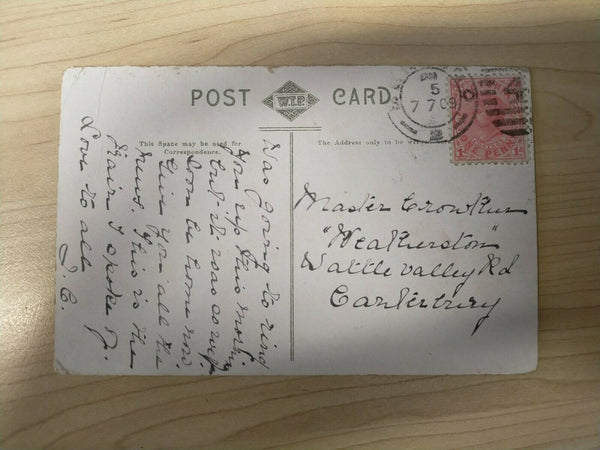 POST W.T.P. CARD.
This Space may be used for
Correspondence.
The Address only to be
5
7 7 09
Was going to ring
you up this morng
but it was so wet.
Soon be home now.
Give you all the
news. This is the
train I spoke of.
Love to all
J. C.
Master
"Heatherston"
Wattle Valley Rd
Canterbury